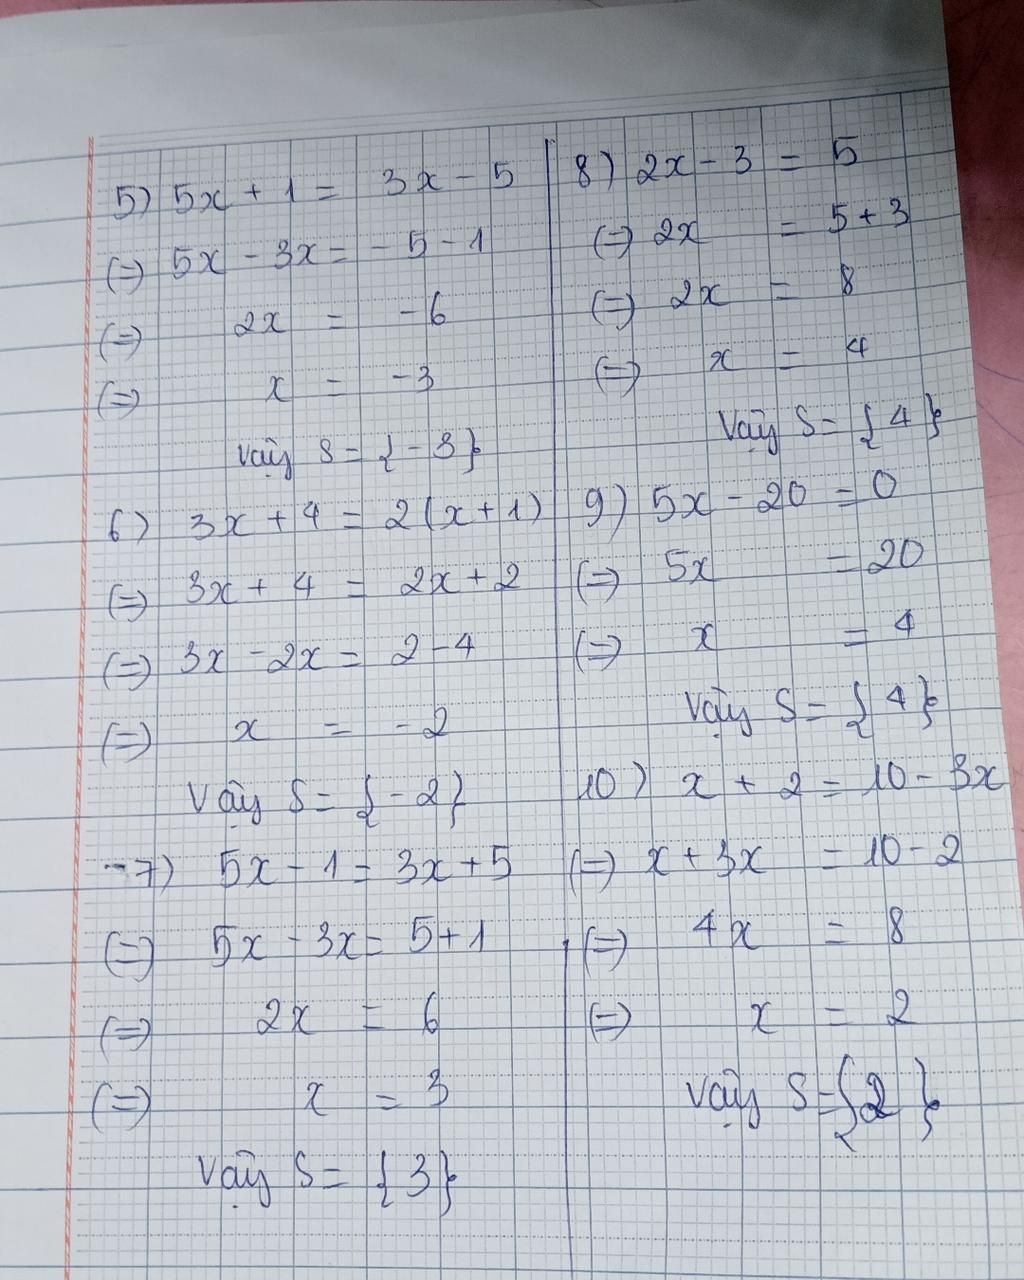 5) 5x + 1 = 3x - 5
(=) 5x - 3x = - 5 - 1
(=) 2x = - 6
(=) x = - 3
Vậy S = { - 3 }
6) 3x + 4 = 2(x + 1)
(=) 3x + 4 = 2x + 2
(=) 3x - 2x = 2 - 4
(=) x = - 2
Vậy S = { - 2 }
7) 5x - 1 = 3x + 5
(=) 5x - 3x = 5 + 1
(=) 2x = 6
(=) x = 3
Vậy S = { 3 }
8) 2x - 3 = 5
(=) 2x = 5 + 3
(=) 2x = 8
(=) x = 4
Vậy S = { 4 }
9) 5x - 20 = 0
(=) 5x = 20
(=) x = 4
Vậy S = { 4 }
10) x + 2 = 10 - 3x
(=) x + 3x = 10 - 2
(=) 4x = 8
(=) x = 2
Vậy S = { 2 }